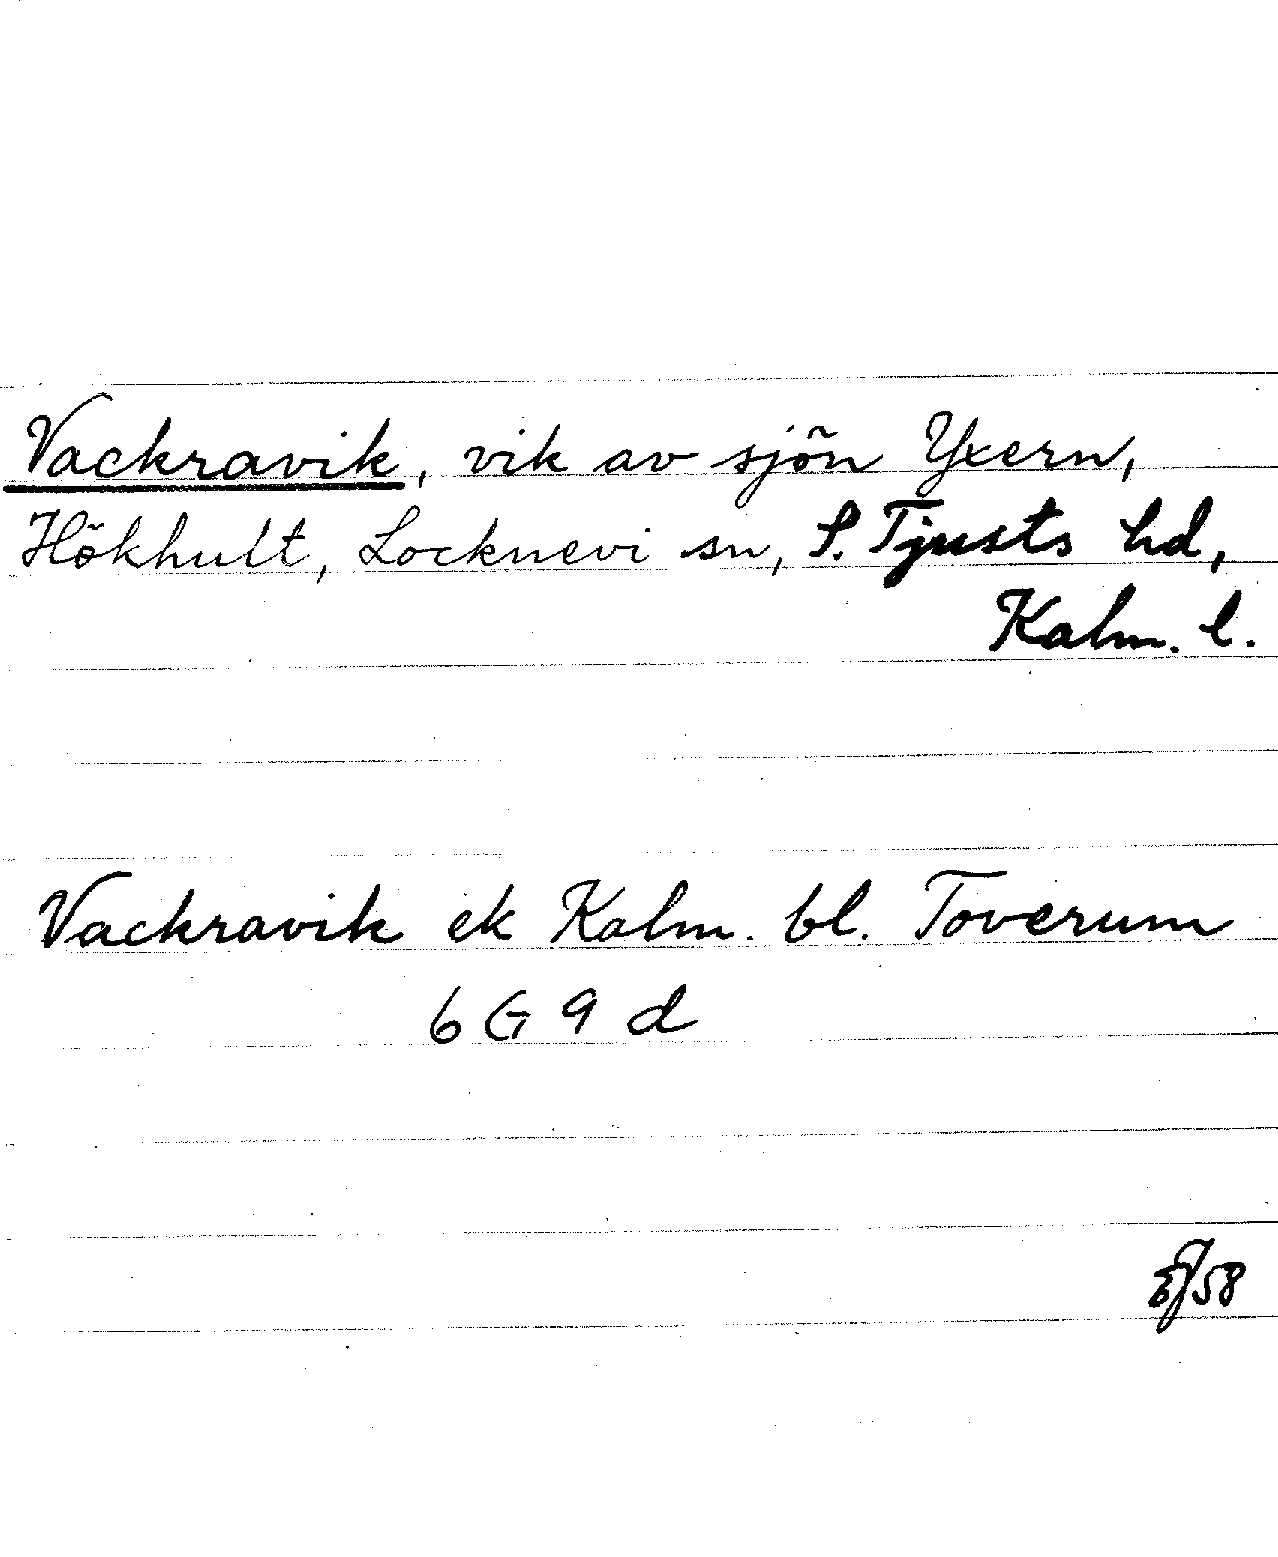 Vackravik, vik av sjön Yxern,
Hökhult, Locknevi sn, S. Tjusts hd,
Kalm. l.
Vackravik ek Kalm. bl. Toverum
6 G 9 d
58